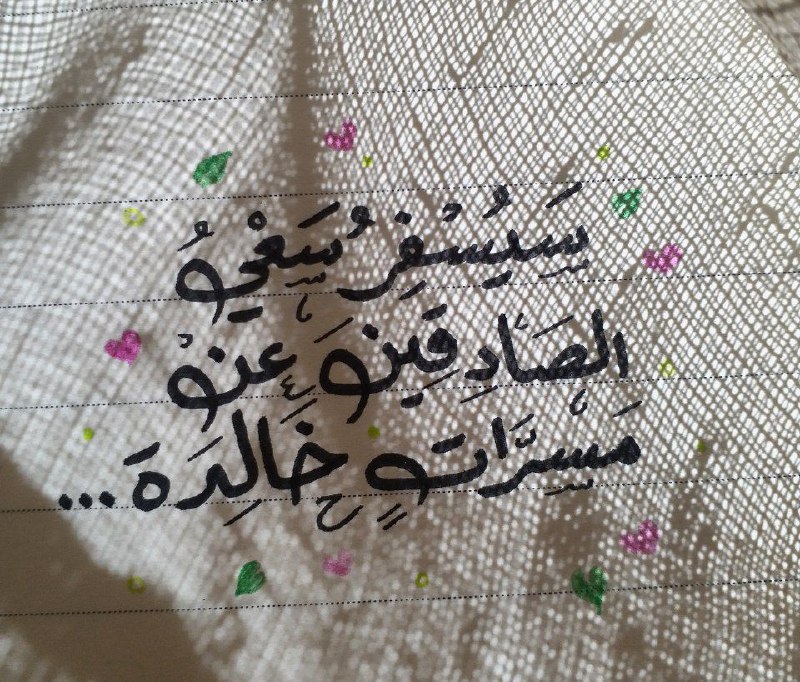 سَيُسْفِرُ سَعْيُ
الصَّادِقِينَ عَنْ
مَسِرَّاتٍ خَالِدَةَ...